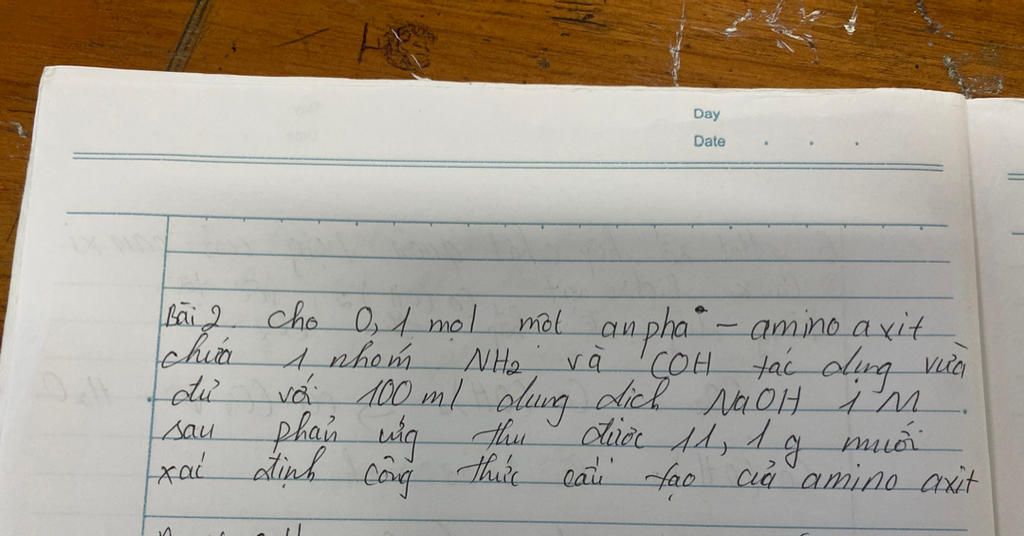 Day
Date . . .
Bài 2. Cho 0,1 mol một anpha - amino axit
chứa 1 nhóm NH2 và COH tác dụng vừa
đủ với 100 ml dung dịch NaOH 1 M.
sau phản ứng thu được 11,1 g muối
xác định công thức cấu tạo của amino axit